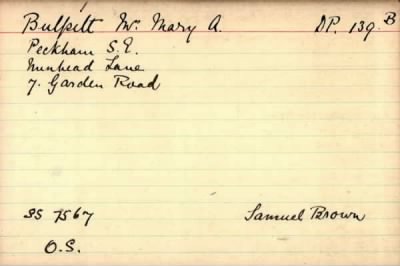 Bulpitt Mrs Mary A. DP. 139. B
Peckham S.E.
Nunhead Lane
7. Garden Road
SS 7567 Samuel Brown
O.S.